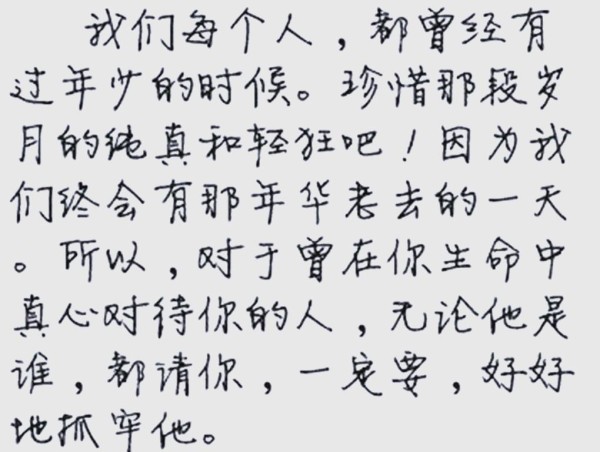 我们每个人，都曾经有
过年少的时候。珍惜那段岁
月的纯真和轻狂吧！因为我
们终会有那年华老去的一天
。所以，对于曾在你生命中
真心对待你的人，无论他是
谁，都请你，一定要，好好
地抓牢他。